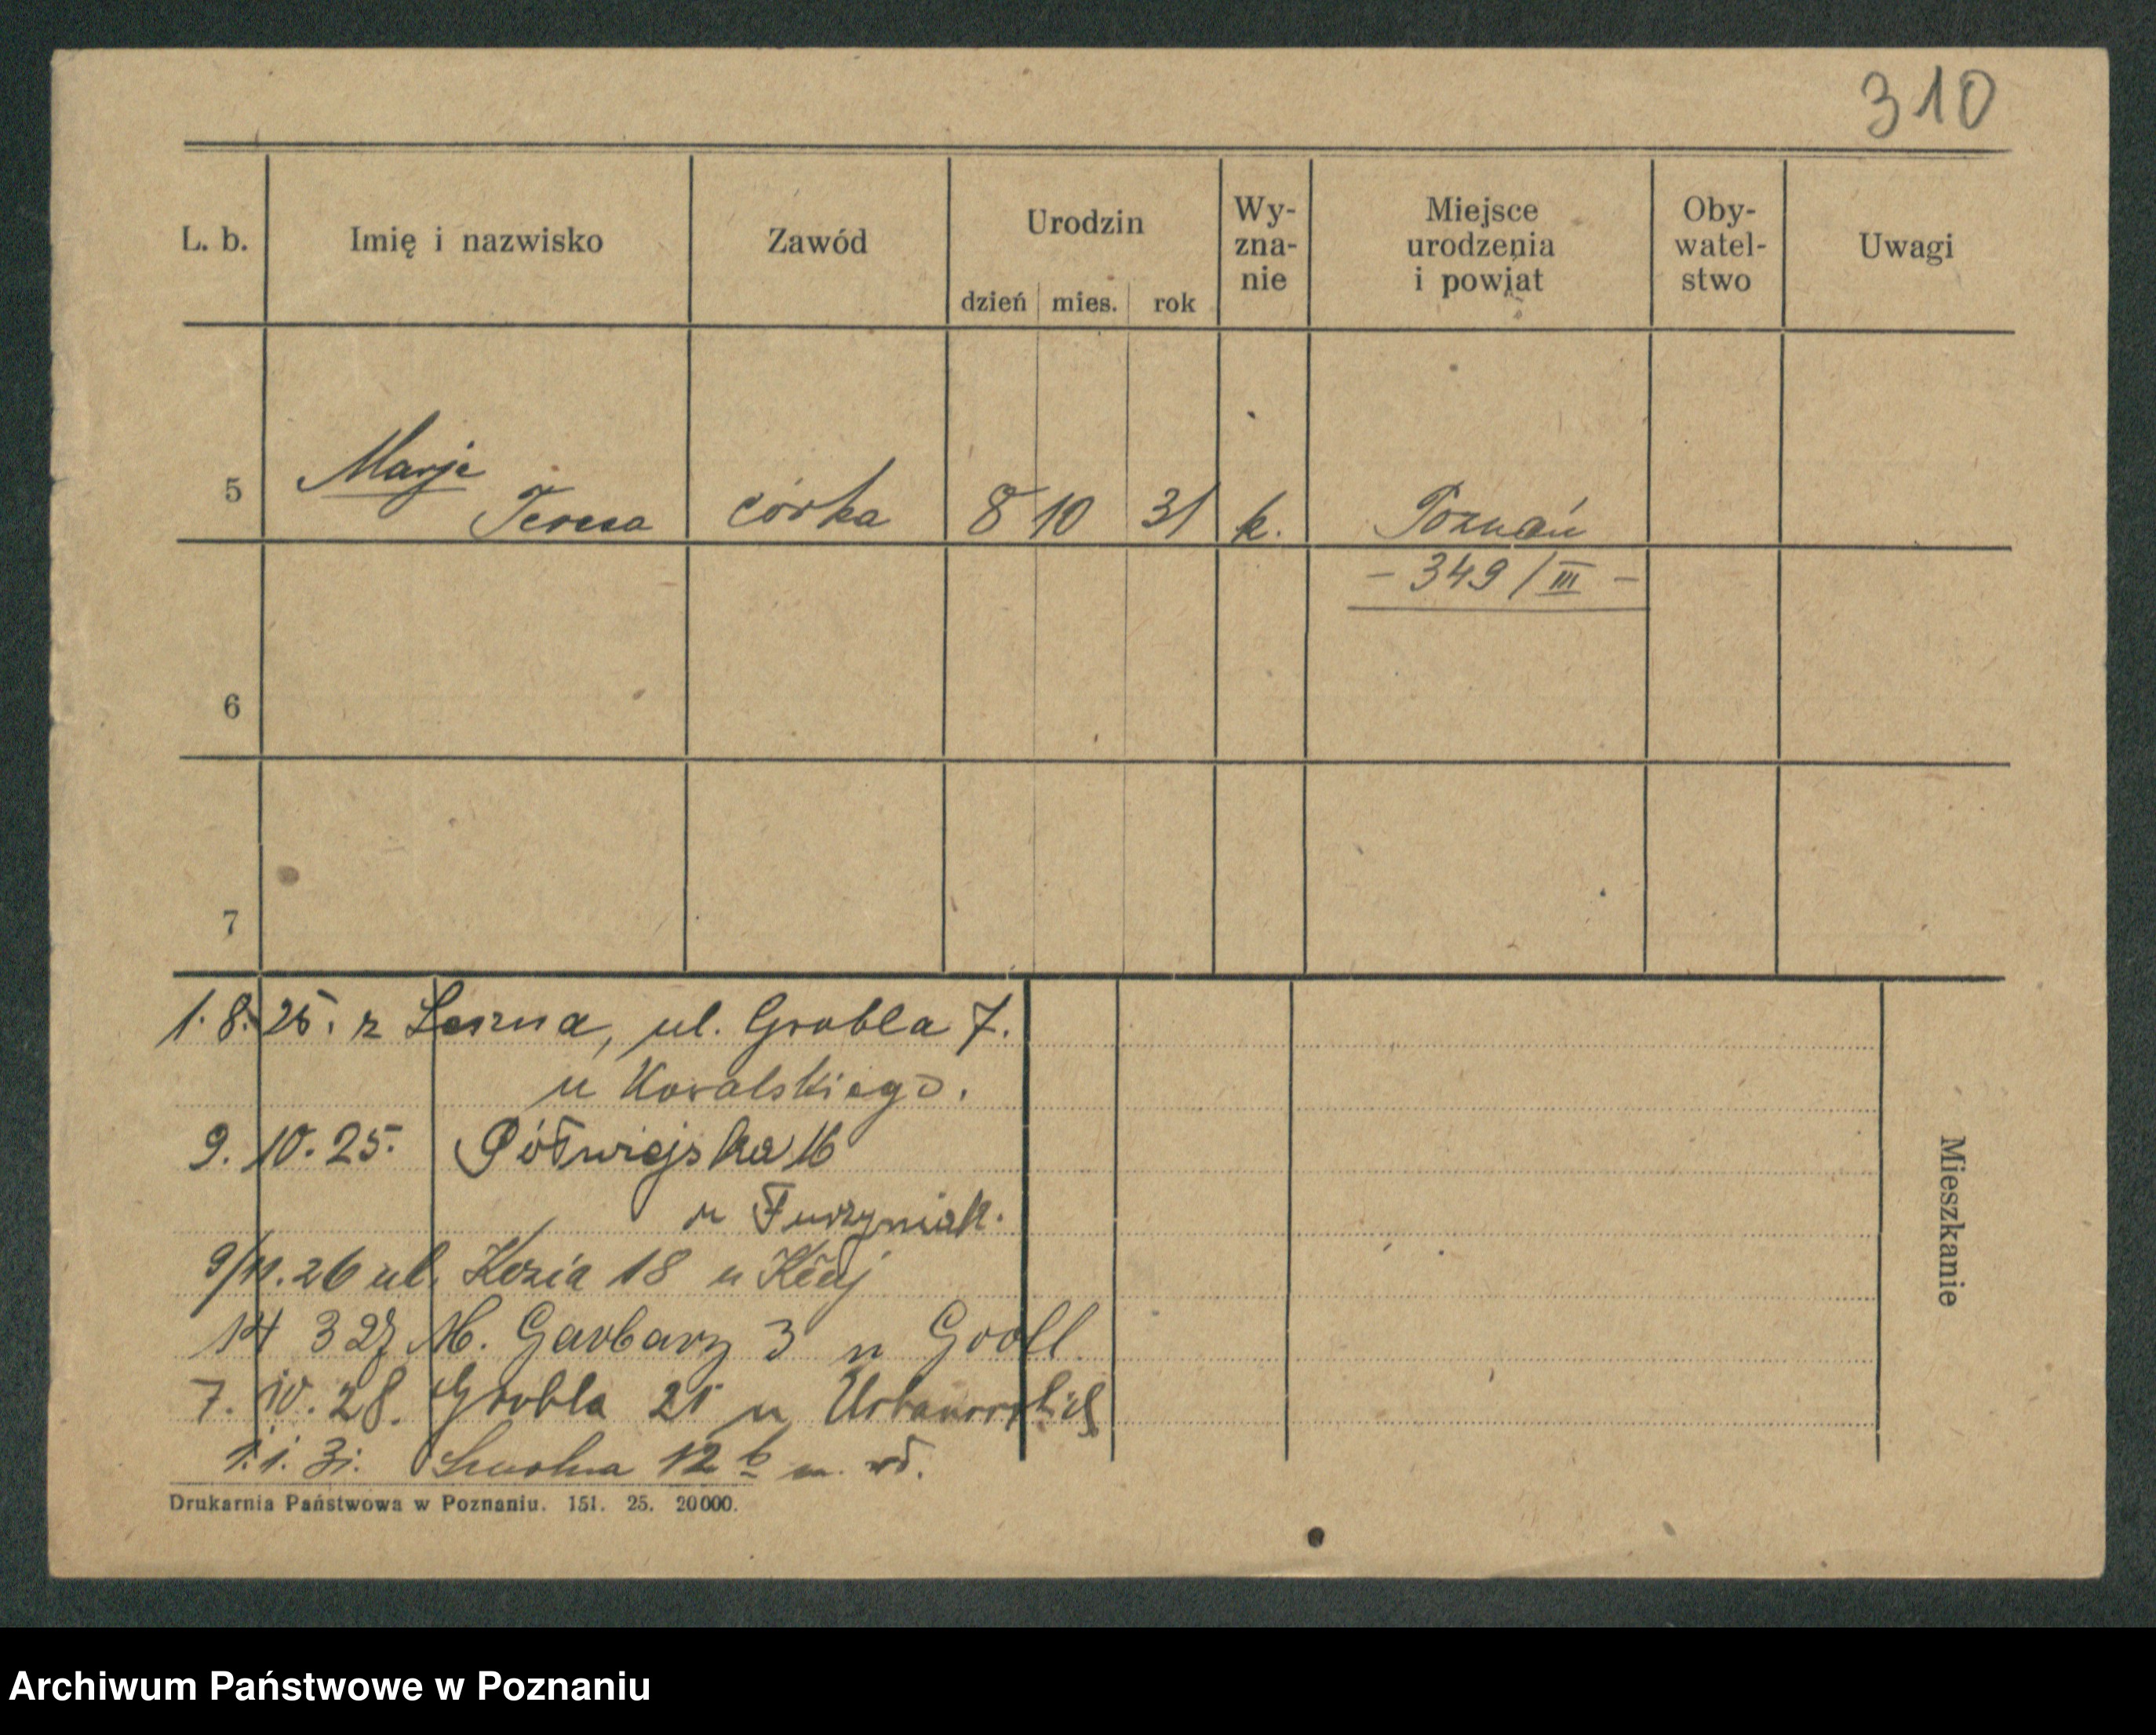 310
L. b. Imię i nazwisko Zawód Urodzin dzień mies. rok Wy-zna-nie Miejsce urodzenia i powiat Oby-watel-stwo Uwagi
Marje
5 Teresa córka 8 10 31 k. Poznań
- 349 / III -
6
7
1. 8. 25. z Leszna, ul. Grobla 7.
u Kowalskiego.
9. 10. 25. Półwiejska 16
u
9/11. 26 ul. Kozia 18 u
14 3 27 M. Garbary 3 u Groll
7. 10. 28. Grobla 25 u Urbanowskich
1. 1. 31. 12 b
Mieszkanie
Drukarnia Państwowa w Poznaniu. 151. 25. 20000.
Archiwum Państwowe w Poznaniu